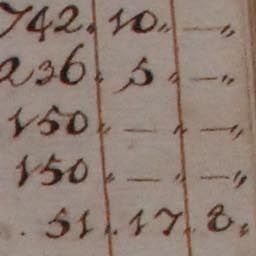 742. 10. —„
236. 5. —„
150„ —„ —„
150„ —„ —„
51. 17. 8.